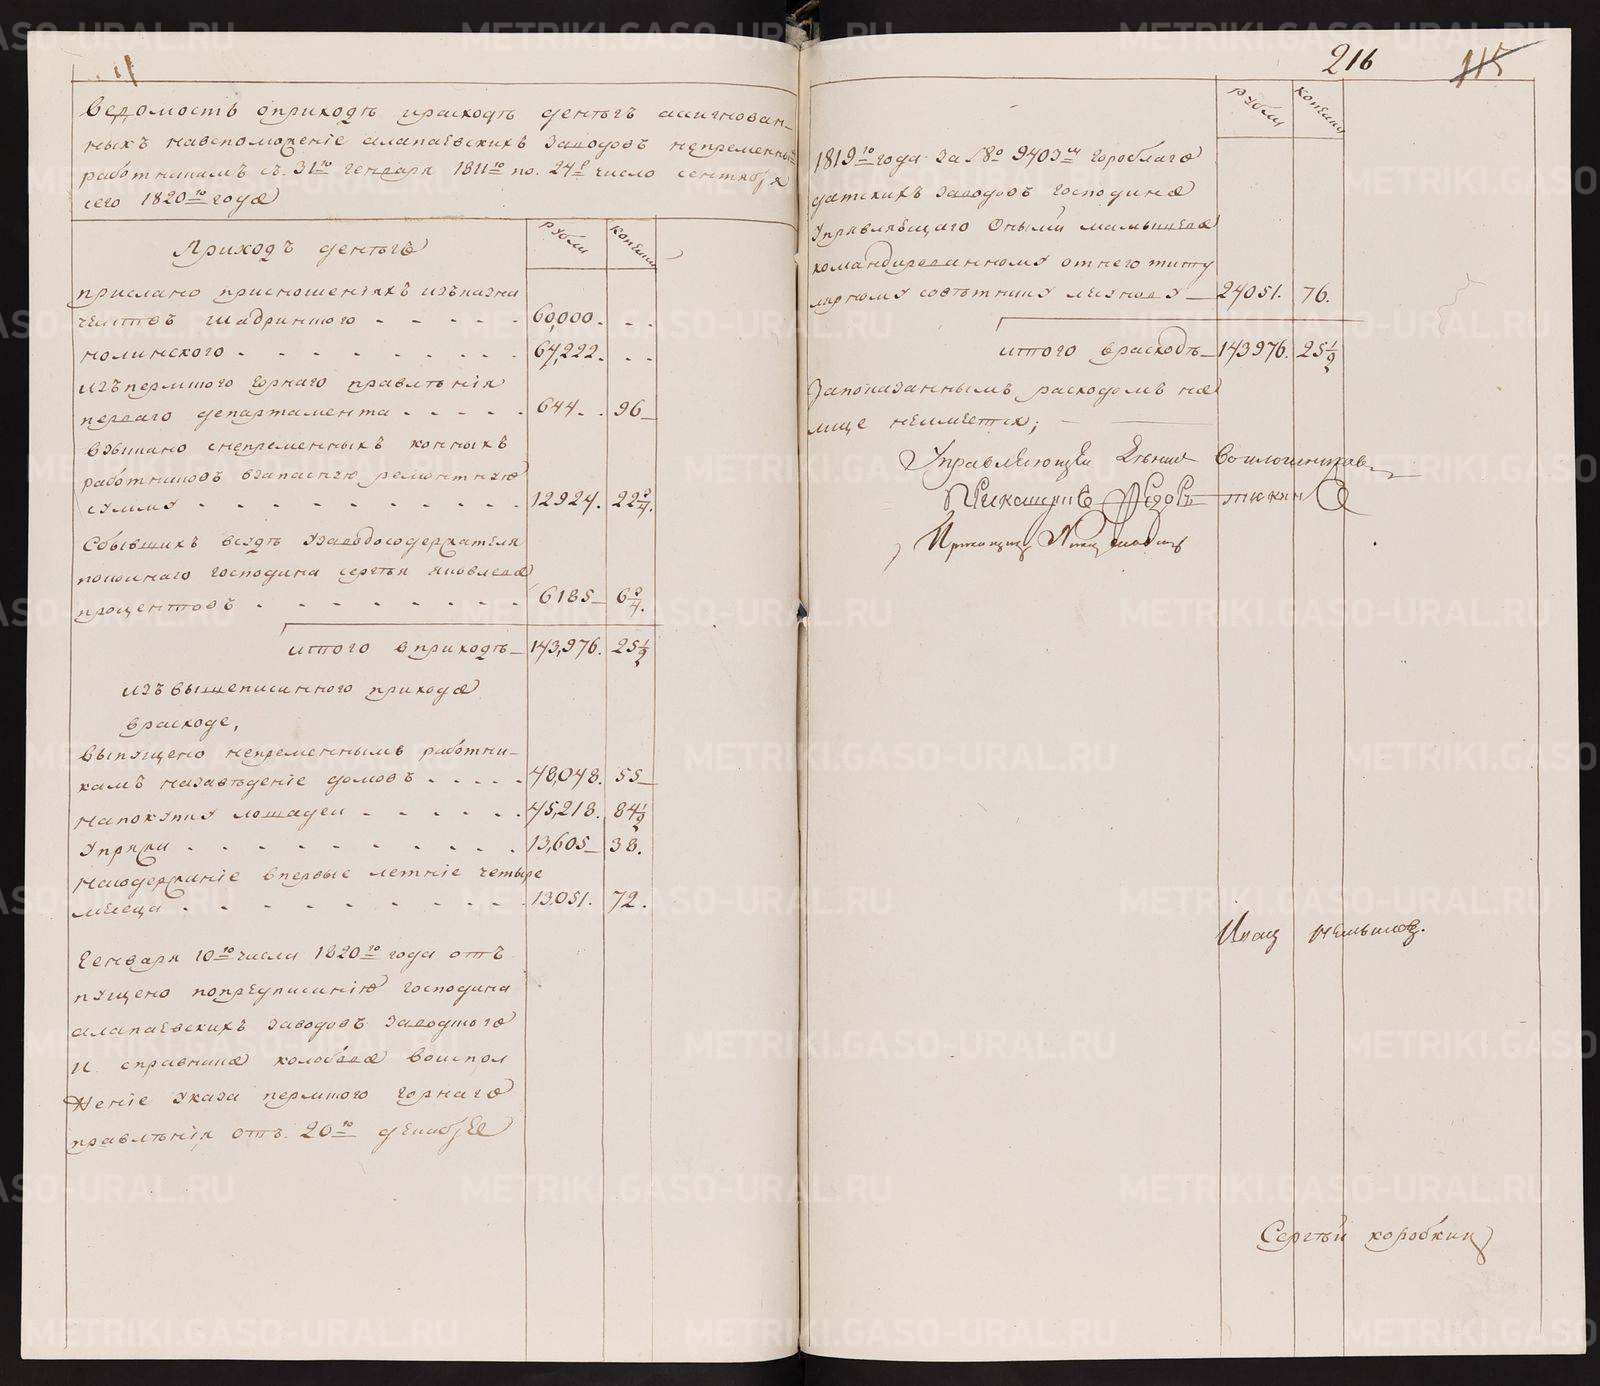 Ведомость оприходѣ ирасходѣ денегъ асигнован-
ныхъ навспоможеніе алапаевскихъ Заводовъ непременны
работникамъ съ. 31го генваря 1811го по. 24е число сентября
сего 1820го года
Приходъ денегъ
рубли
копейки
прислано приотношеніяхъ изъказна
чействъ Шадринского
60,000.
нолинского
67,222.
изъпермского горнаго правленія
перваго департамента
644. 96
взыскано снепременныхъ конныхъ
работниковъ взапасную ремонтную
сумму
12924. 22 3/4.
Сбывшихъ всудѣ узаводосодержателя
покоинаго господина сергея яковлева
процентовъ
6185 6 3/4.
итого вприходѣ 143,976. 25 1/2
изъвышеписанного прихода
врасходе,
выпущено непременнымъ работни-
камъ назаведеніе домовъ
48,048. 55
напокупку лошадеи
45,218. 84 1/2
упряжи
13,605 38.
насодержаніе впервые летніе четыре
месеца
13,051. 72.
Генваря 10го числа 1820го года отъ
пущено попредписанію господина
алапаевскихъ заводовъ заводского
и справника воиспол
неніе указа пермского горнаго
правленія отъ. 20го декабря
216
115
рубли
копейки
1819го года за №о 9403м гороблаго
датскихъ заводовъ господина
управляющаго Оными мамышева
командированному отнего титу
лярному советнику
24051. 76.
итого врасходѣ 143976. 25 1/2
Запоказаннымъ расходомъ на
лице неимеется;
Управляющеи
Прикащикъ Федоръ
Иванъ
Сергѣй коробкинъ